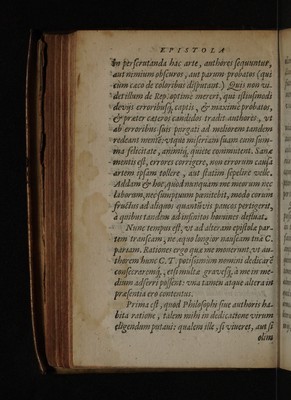 EPISTOLA
In perscrutanda hac arte, authores sequuntur,
aut nimium obscuros, aut parum probatos (qui
cum cæco de coloribus disputant.) Quis non vi-
det illum de Rep. optime mereri, qui istiusmodi
devijs erroribusq́, captis, & maxime probatos,
& præter cæteros candidos tradit authores, vt
ab erroribus suis purgati ad meliorem tandem
redeant mentē: vtq́ue miseriam suam cum sum-
ma felicitate, animiq́, quiete commutent. Sanæ
mentis est, errores corrigere, non errorum causa
artem ipsam tollere, aut statim sepelire velle.
Addam & hoc, quòd nunquam me meorum nec
laborum, nec sumptuum pœnitebit, modo eorum
fructus ad aliquos quantũvis paucos pertigerit,
à quibus tandem ad infinitos homines defluat.
Nunc tempus est, vt ad alteram epistolæ par-
tem transeam, ne æquo longior nauseam tuæ C.
pariam. Rationes ergo quæ me monerunt, vt au-
thorem hunc C. T. potissimùm nomini dedicarē
consecraremq́,, etsi multæ gravesq́, à me in me-
dium adferri possent: vna tamen atque altera in
præsentia ero contentus.
Prima est, quod Philosophi sine authoris ha-
bita ratione, talem mihi in dedicatione virum
eligendum putavi: qualem ille, si viveret, aut si
olim